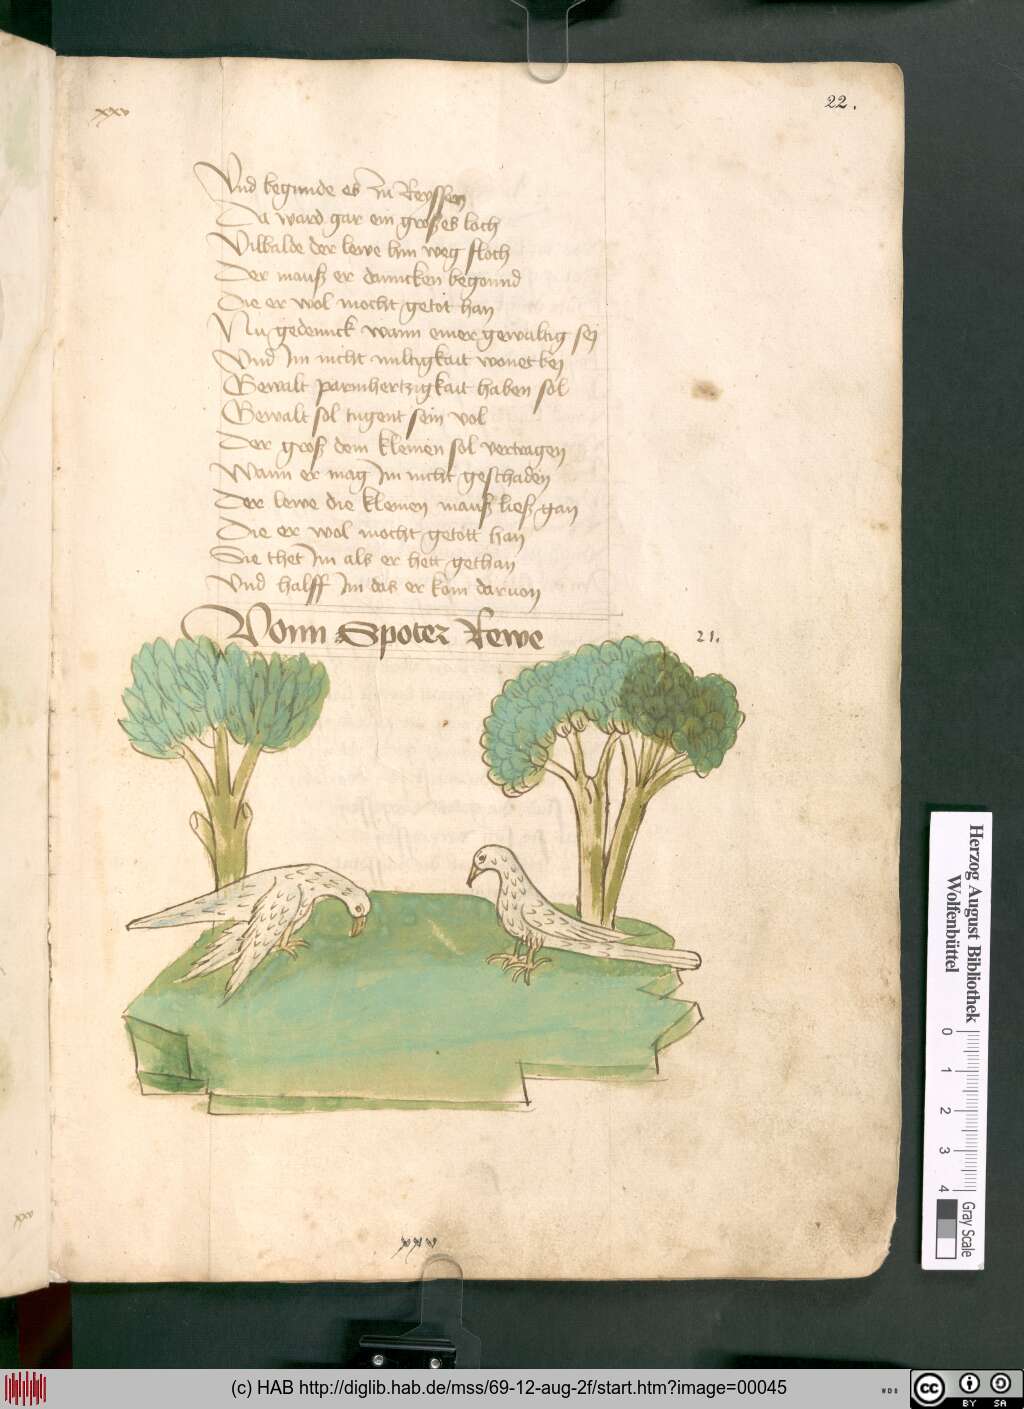 xxv
22.
Vnd begunde es zu Reyssen
Da ward gar ein großes loch
Vilbalde der lewe hin weg floch
Der mauß er dancken begonnd
Die er wol mocht getot han
Nu gedennck wann einer gewaltig sej
Vnd Im nicht miltigkait wonet bej
Gewalt parmhertzigkait haben sol
Gewalt sol tugent sein vol
Der groß dem kleinen sol vertragen
Wann er mag Im nicht geschaden
Der lewe die kleinen mauß ließ gan
Die er wol mocht getott han
Sie thet Im als er hett gethan
Vnd halff Im das er kom daruon
Vonn Spoter Rewe
21.
xxv
xxv
Herzog August Bibliothek
Wolfenbüttel
0 1 2 3 4
Gray Scale
(c) HAB http://diglib.hab.de/mss/69-12-aug-2f/start.htm?image=00045
WDB
cc BY SA